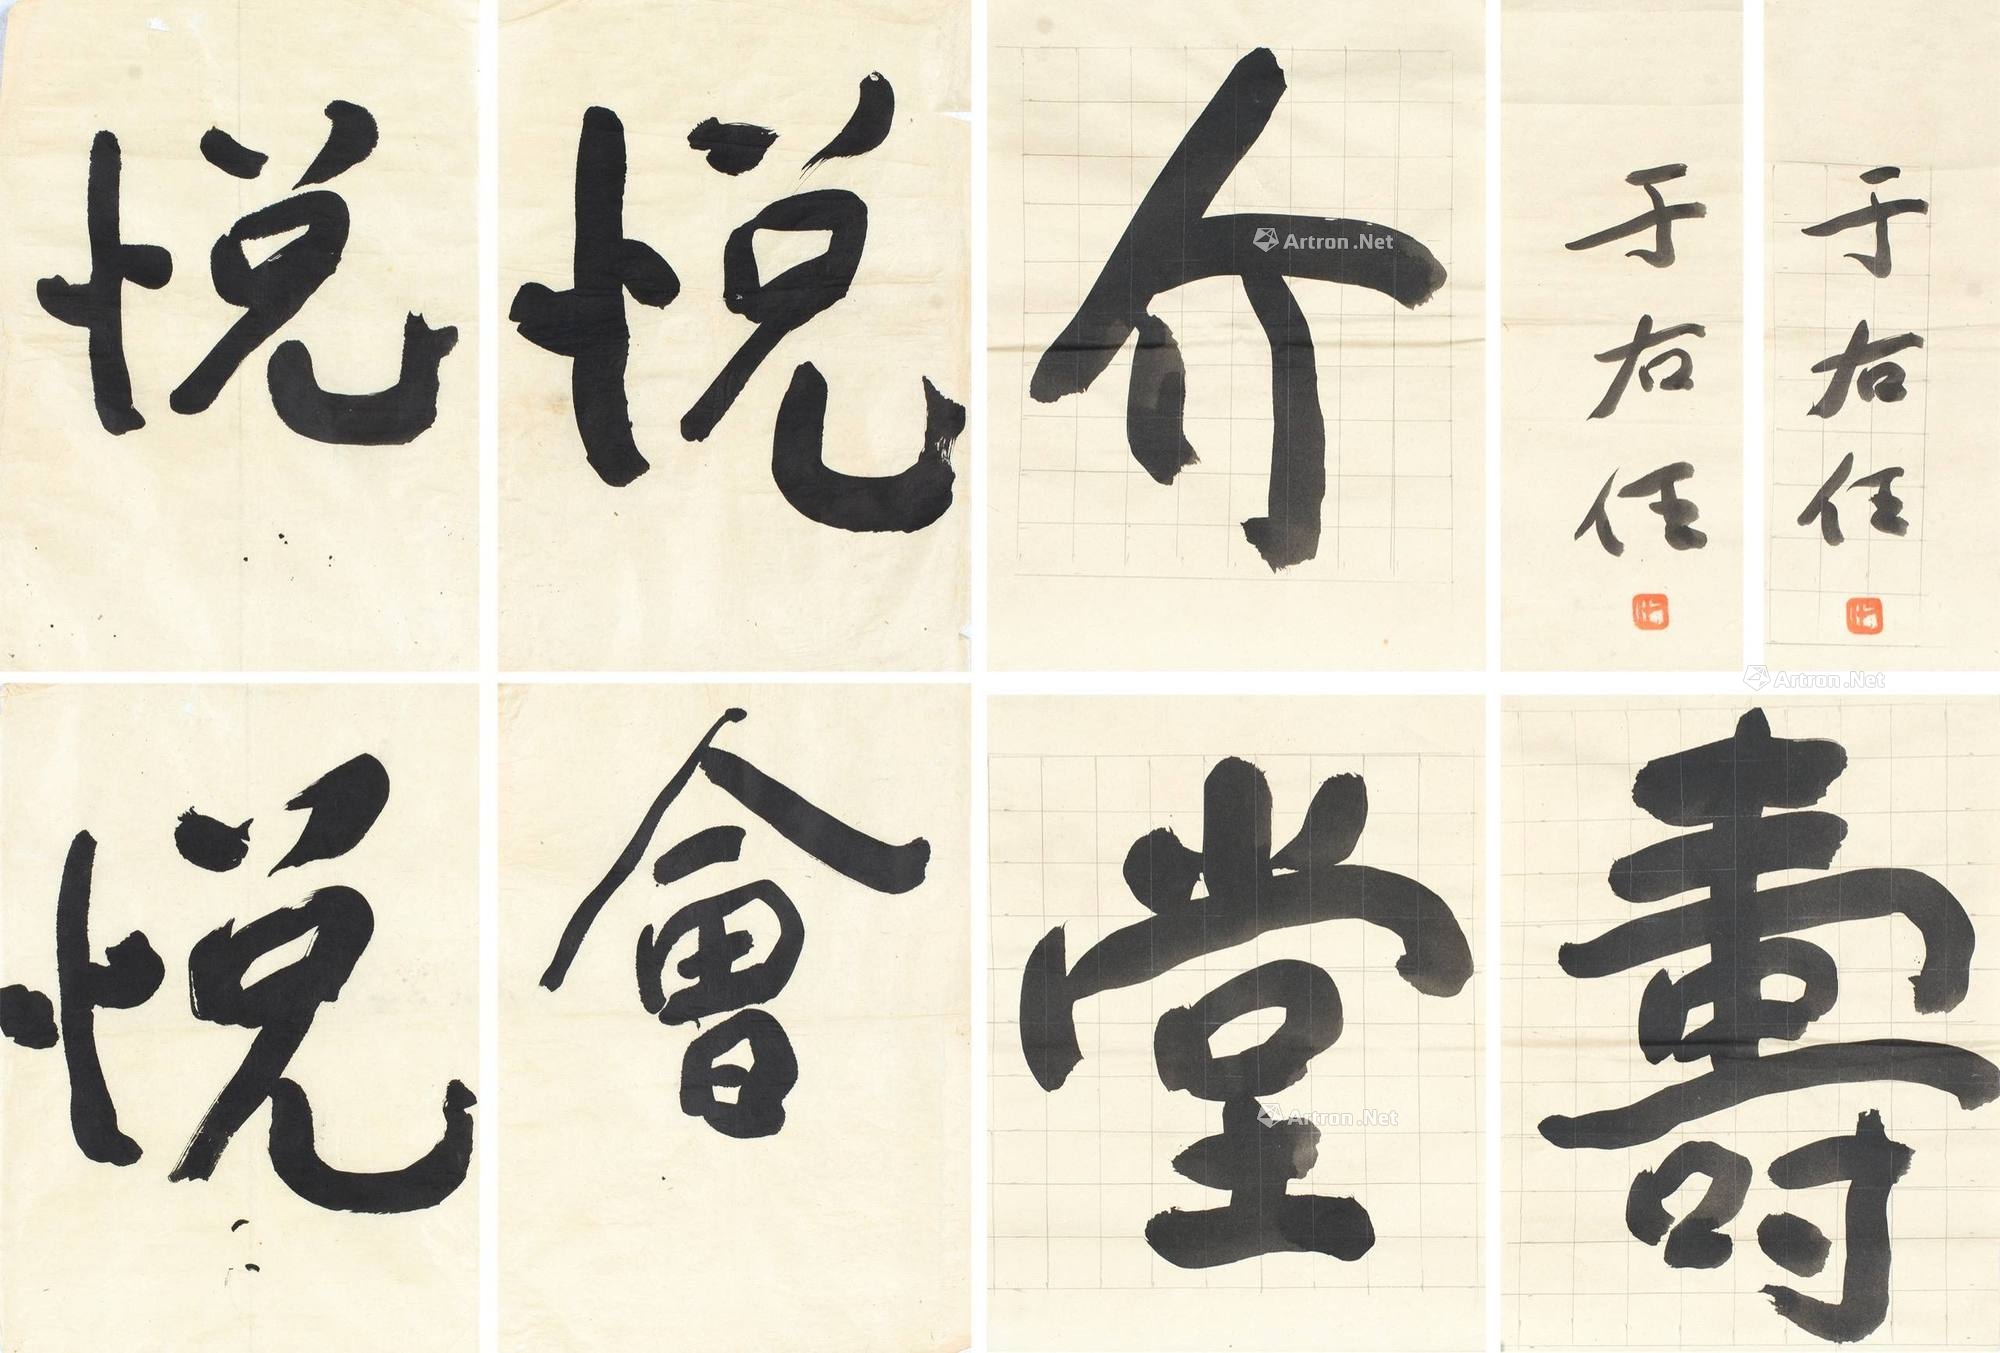 悦
悦
介
于右任
于右任
悦
會
堂
壽
Artron.Net
Artron.Net
Artron.Net